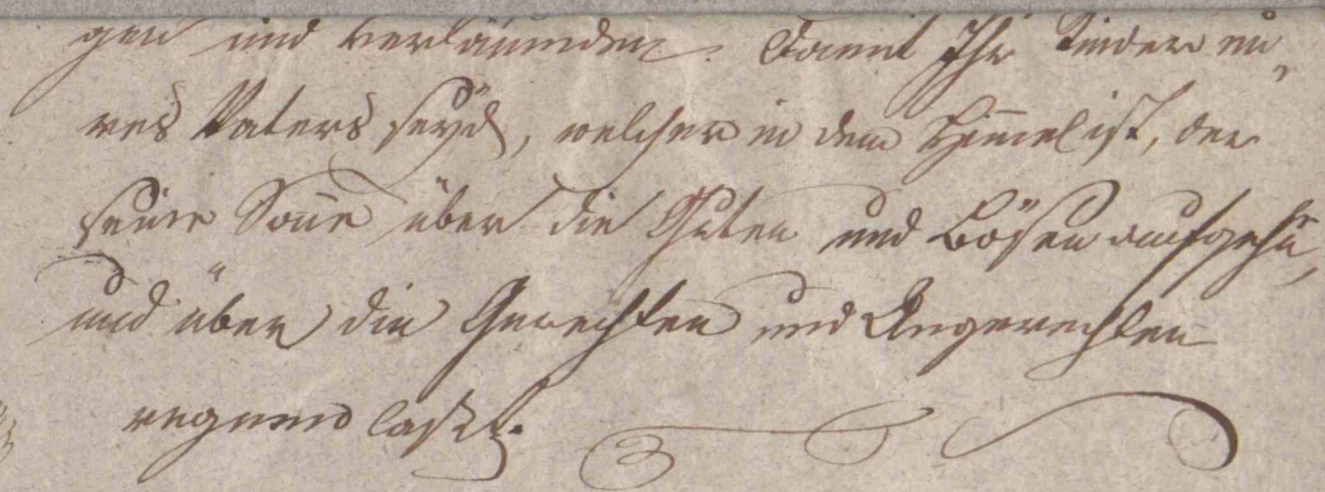 gen und verläumden. Damit Ihr Kinder eu,
res Vaters seyd, welcher in dem Him̅el ist, der
seine Son̅e über die Guten und Bösen aufgehn,
und über die Gerechten und Ungerechten
regnend lasst.